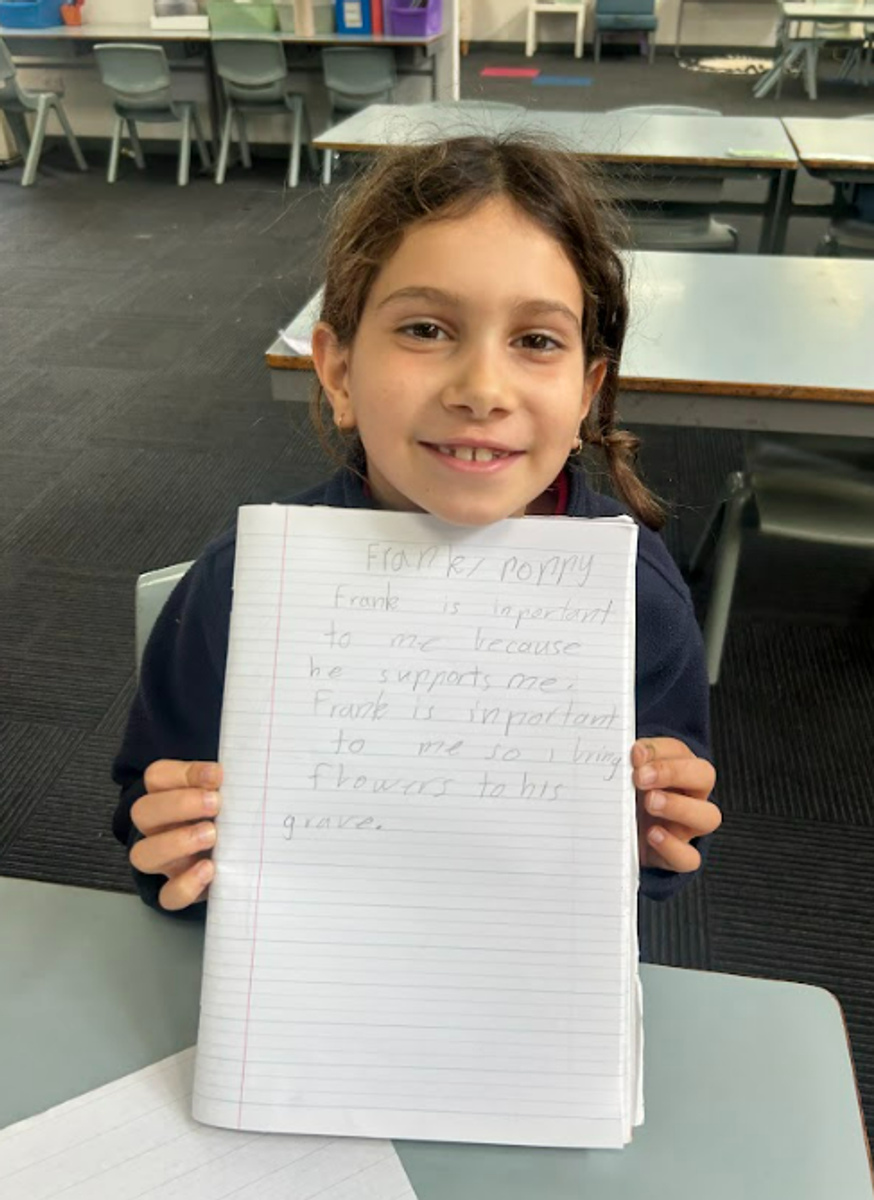 Frank/ poppy
Frank is inportant
to me because
he supports me.
Frank is inportant
to me so i bring
flowers to his
grave.